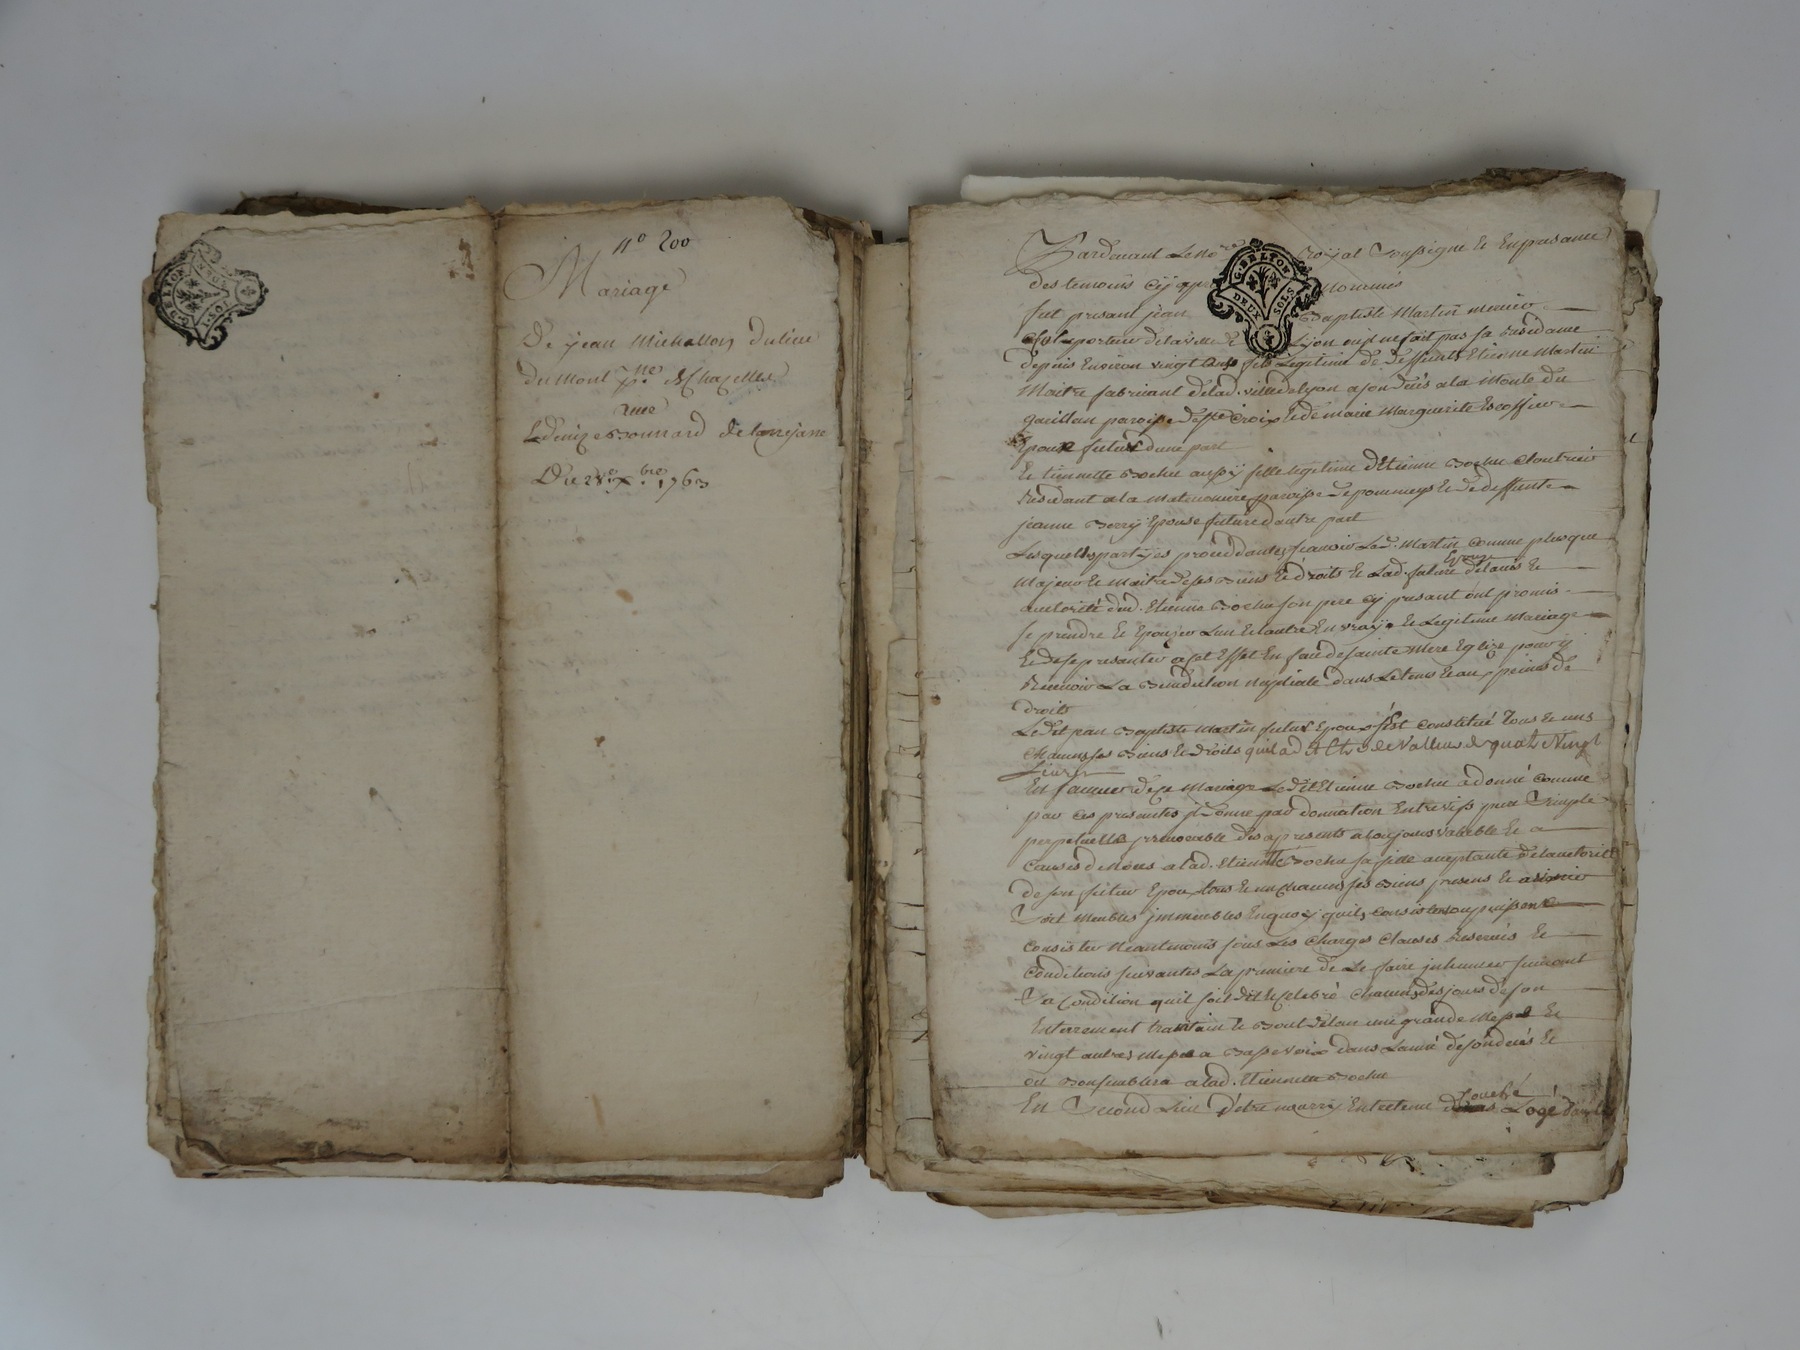 G. DE LYON
DEUX SOLS
n.º 200
Mariage
De jean Michallon du lieu
du Mont p.sse de Chazelles
avec
Denize Bonnard de la
Du 28.e x.bre 1763
G. DE LYON
DEUX SOLS
Pardevant Le No.re royal soussigné Et En presance
des temoins cy apres Nommés
fut presant jean Baptiste Martin menier
de la ville de Lyon ou il ne fait pas sa residance
depuis Environ vingt ans fils Legitime de deffunt Etienne Martin
Maitre fabricant de lad. ville de lyon a son deces a la Monté du
gaillan paroisse de s.te Croix Et de marie Marguerite Escoffier
Epoux futur d'une part
Et tiennette Bochu aussy fille legitime d'Etienne Bochu Cloutrier
residant a la paroisse de pommeys Et de deffunte
jeanne Berry Epouse future d'autre part
Lesquelles partyes procedantes scavoir Led. Martin comme plus que
Majeur Et Maitre de ses Biens Et droits Et Lad. future Epouse de l'avis Et
authorité dud. Etienne Bochu son pere cy presant ont promis
se prendre Et Epouser L'un Et l'autre En vray Et Legitime Mariage
Et de se presanter a cet Effet En face de sainte Mere Eglize pour y
Recevoir La Benediction nuptiale dans Le tems Et aux peines de
droits
Ledit jean Baptiste Martin futur Epoux s'est constitué tous Et uns
Chacuns ses Biens Et droits qu'il a d Et de Valleur de quatre Vingt
Livres
En faveur de ce Mariage Ledit Etienne Bochu a donné comme
par ces presentes il donne par donnation Entre vifs pure simple
perpetuelle irrevocable des a presents a toujours valable Et a
Causes de Noces a lad. Etiennette Bochu sa fille acceptante de l'autorité
de son futur Epoux tous Et un chacuns ses Biens presens Et a venir
Soit Meubles immeubles En quoy qu'ils consistent ou puissent
Consister Neantmoins sous Les Charges Clauses Reserves Et
Conditions suivantes La premiere de Le faire inhumer suivant
Sa Condition qu'il soit dit Et celebré chacuns des jours de son
Enterrement trantain Et Bout de l'an une grande Messe Et
vingt autres Messes a Basse voix dans L'année de son deces Et
ou Bon semblera a lad. Etiennette Bochu
En Second Lieu d'etre nourry Entretenu Couché Logé